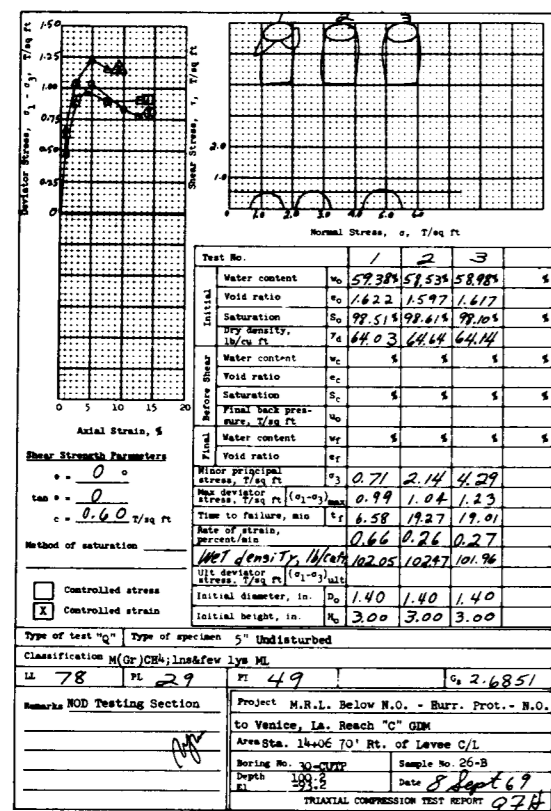 1 2 3
Deviator Stress, σ1 - σ3, T/sq ft
1.50
1.25
1.00
0.75
0.50
0.25
0
0 5 10 15 20
Axial Strain, %
Shear Stress, τ, T/sq ft
2.0
1.0
0 1.0 2.0 3.0 4.0 5.0 6.0
Normal Stress, σ, T/sq ft
Shear Strength Parameters
φ = 0 °
tan φ = 0
c = 0.60 T/sq ft
Method of saturation
Controlled stress
X Controlled strain
Test No. 1 2 3
Initial
Water content w₀ 59.38% 58.53% 58.98% %
Void ratio e₀ 1.622 1.597 1.617
Saturation S₀ 98.51% 98.61% 98.10% %
Dry density, lb/cu ft γd 64.03 64.64 64.14
Before Shear
Water content wc % % % %
Void ratio ec
Saturation Sc % % % %
Final back pressure, T/sq ft u₀
Final
Water content wf % % % %
Void ratio ef
Minor principal stress, T/sq ft σ3 0.71 2.14 4.29
Max deviator stress, T/sq ft (σ1-σ3)max 0.99 1.04 1.23
Time to failure, min tf 6.58 19.27 19.01
Rate of strain, percent/min 0.66 0.26 0.27
Wet density, lb/cuft 102.05 102.47 101.96
Ult deviator stress, T/sq ft (σ1-σ3)ult
Initial diameter, in. D₀ 1.40 1.40 1.40
Initial height, in. H₀ 3.00 3.00 3.00
Type of test "Q" Type of specimen 5" Undisturbed
Classification M(Gr)CH4; lns&few lys ML
LL 78 PL 29 PI 49 Gs 2.6851
Remarks NOD Testing Section
Project M.R.L. Below N.O. - Hurr. Prot.- N.O.
to Venice, La. Reach "C" GDM
Area Sta. 14+06 70' Rt. of Levee C/L
Boring No. 30-CUTP Sample No. 26-B
Depth 100.2
El -93.2 Date 8 Sept 69
TRIAXIAL COMPRESSION TEST REPORT Q7H